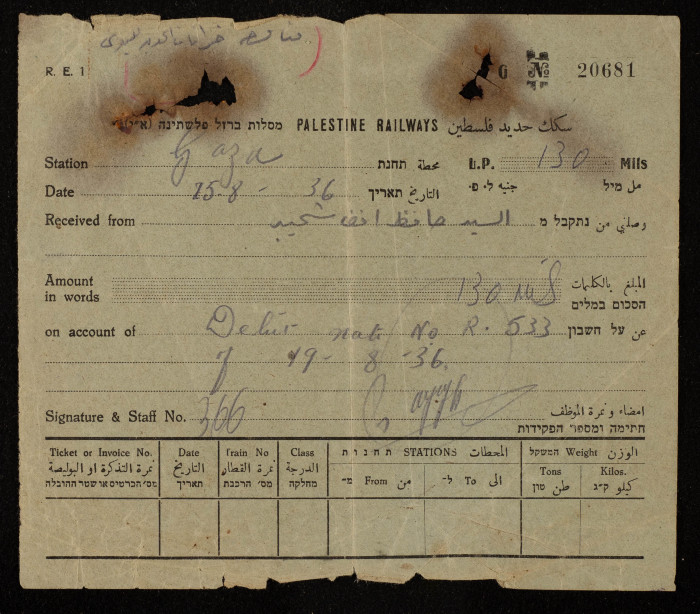 R. E. 1
G № 20681
מסלות ברזל פלשתינה (א״י) PALESTINE RAILWAYS سكك حديد فلسطين
Station Gaza محطة תחנת £.P. 130 Mils
Date 15-8-36 التاريخ תאריך جنيه ל. פ. مل מיל
Received from السيد حافظ افندي وصلني من נתקבל מ
Amount in words 130 Mils المبلغ بالكلمات הסכום במלים
on account of Debit note No R. 533 عن על חשבון
7 19-8-36.
Signature & Staff No. 366 امضاء ونمرة الموظف חתימה ומספר הפקידות
Ticket or Invoice No. Date Train No Class המחטות תחנות STATIONS المحطات המשקל Weight الوزن
نمرة التذكرة او البوليصة التاريخ نمرة القطار الدرجة מ– From من ל– To الى Tons طن טון Kilos. كيلو ק״ג
מס׳ הכרטיס או שטר ההובלה תאריך מס׳ הרכבת מחלקה